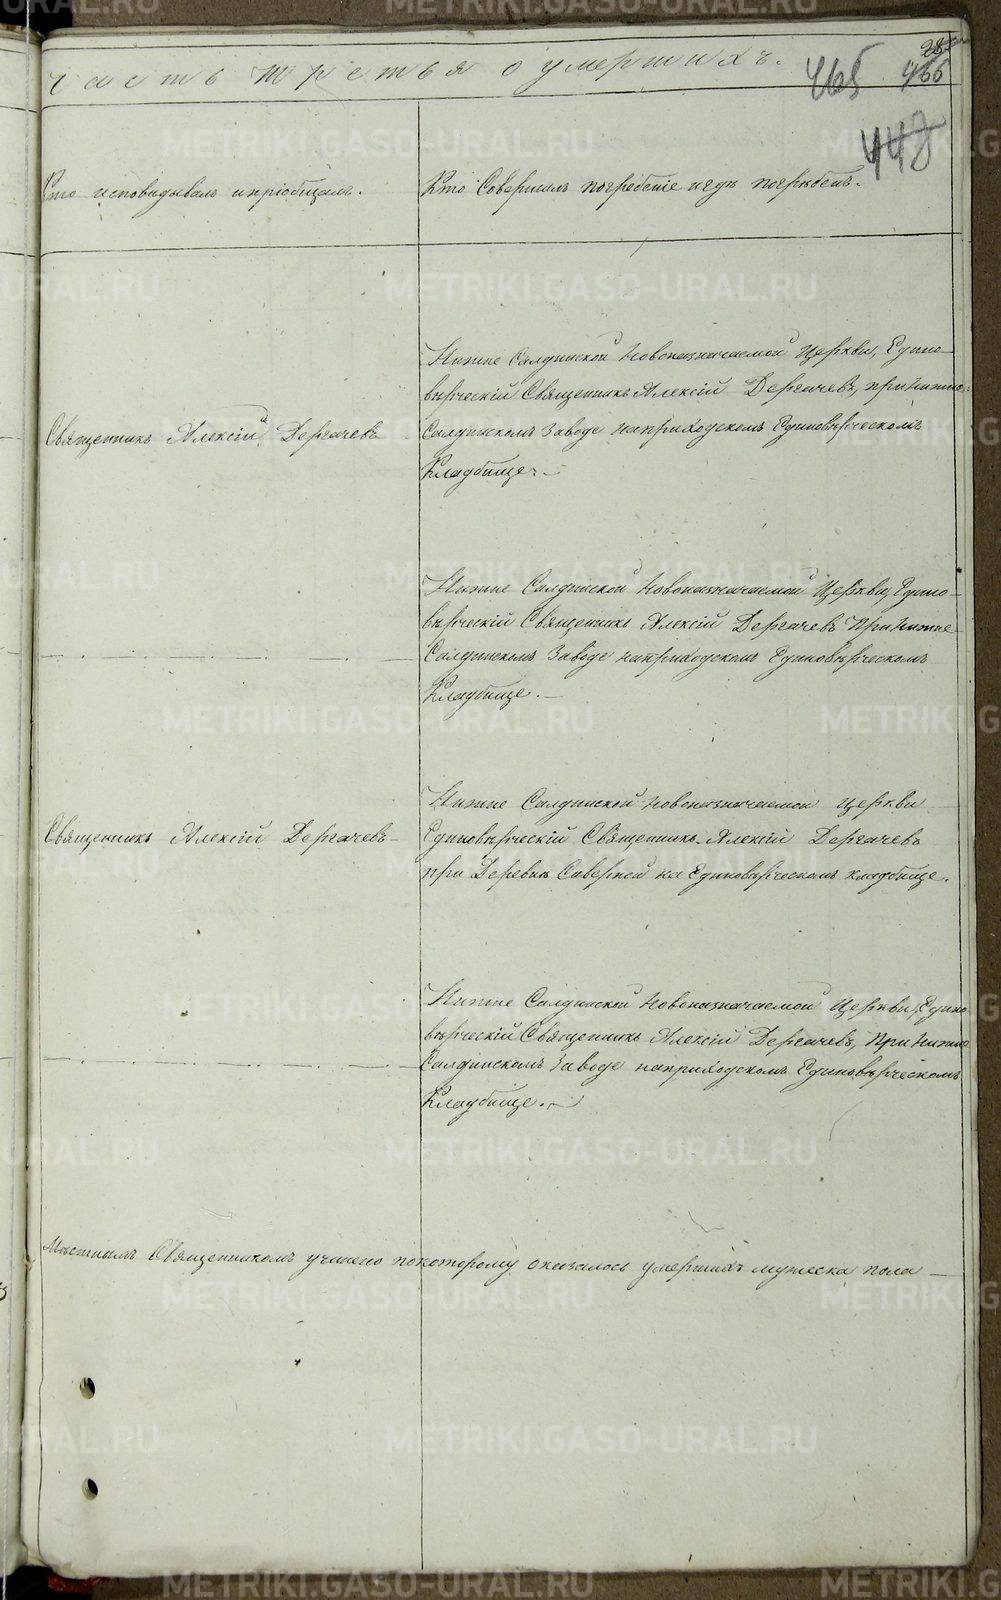 28
часть третья о умершихъ.
465 466
448
Кто исповедывалъ и пріобщалъ.
Кто Совершилъ погребеніе и гдѣ погрѣбенъ.
Нижне Салдинской Новоназначаемой Церкви, Едино-
вѣрческій Священникъ Алексій Дергачевъ, при Нижне-
Священникъ Алексій Дергачевъ
Салдинскомъ Заводе на приходскомъ Единовѣрческомъ
Кладбище.
Нижне Салдинской Новоназначаемой Церкви, Едино-
вѣрческій Священникъ Алексій Дергачевъ При Нижне-
Салдинскомъ Заводе на приходскомъ Единовѣрческомъ
Кладбище.
Нижне Салдинской Новоназначаемой Церкви
Священникъ Алексій Дергачевъ
Единовѣрческій Священникъ Алексій Дергачевъ
при Деревнѣ Северной на Единовѣрческомъ кладбище.
Нижне Салдинской Новоназначаемой Церкви, Едино-
вѣрческій Священникъ Алексій Дергачевъ, При Нижне
Салдинскомъ Заводе на приходскомъ Единовѣрческомъ
Кладбище.
Мѣстнымъ Священникомъ учинено по которому оказалось умершихъ мужеска пола
METRIKI.GASO-URAL.RU